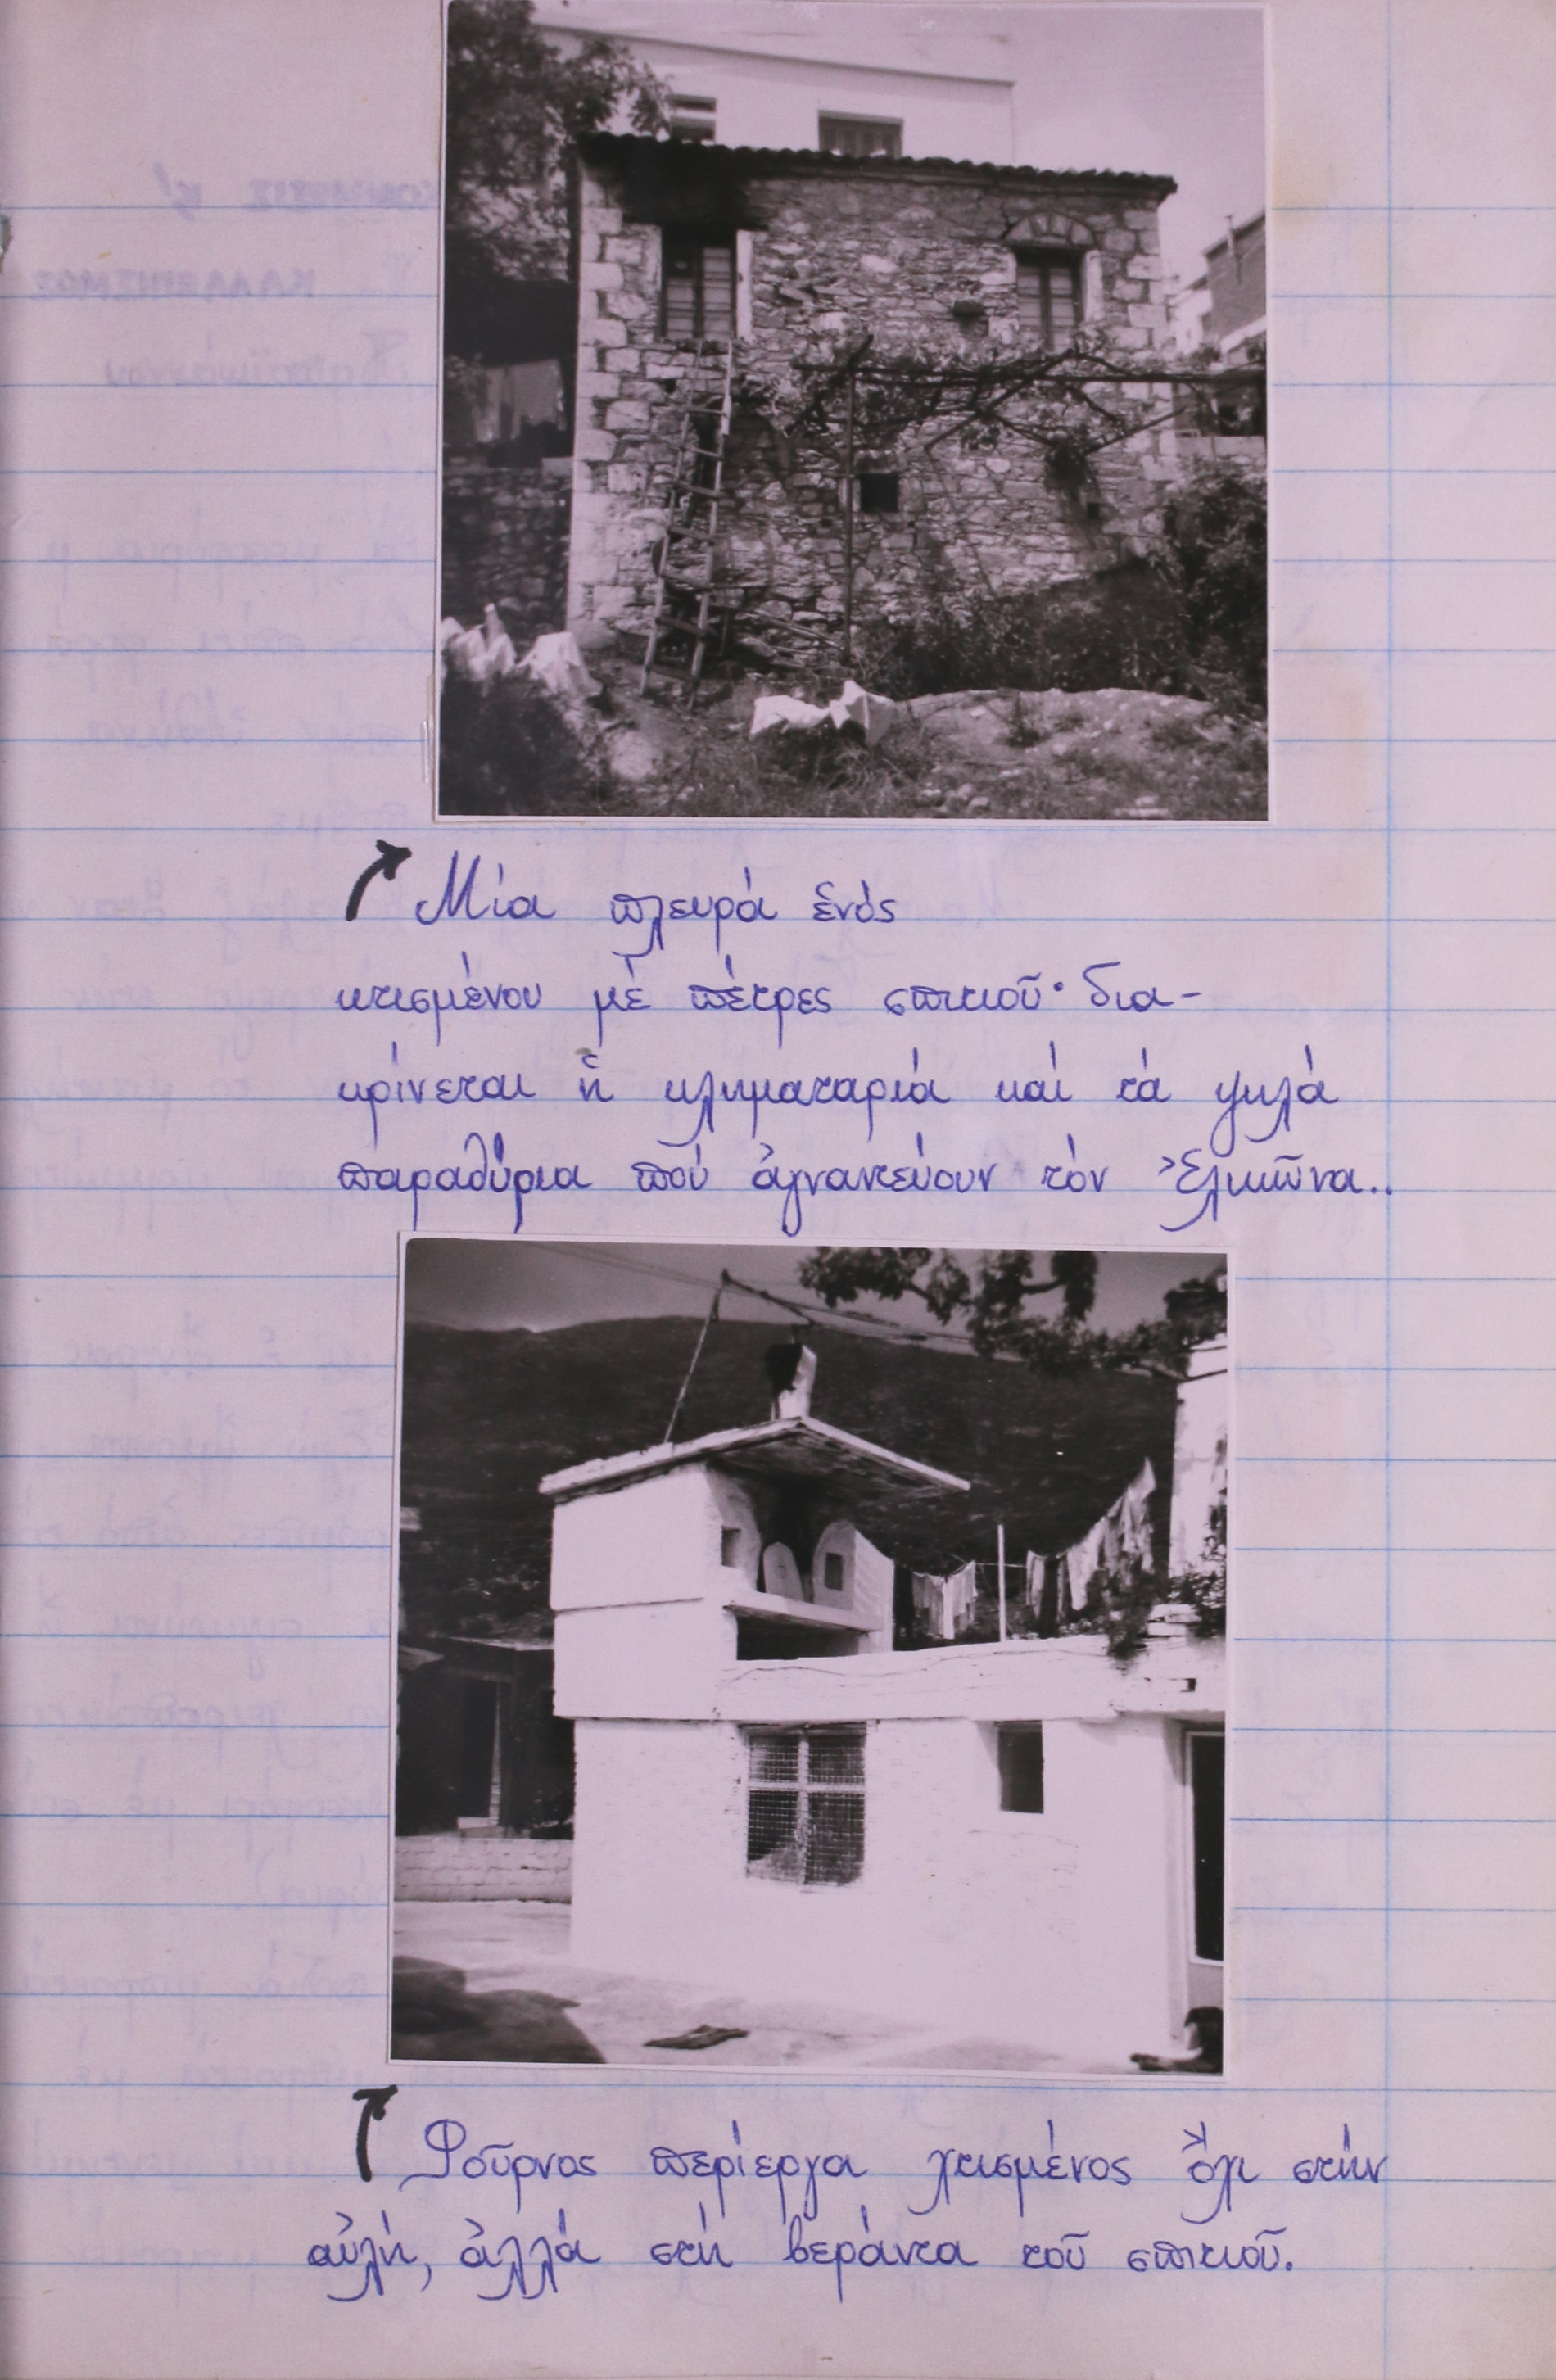 Μία πλευρά ἑνός
κτισμένου μέ πέτρες σπιτιοῦ· δια-
κρίνεται ἡ κληματαριά καί τά ψηλά
παραθύρια πού ἀγναντεύουν τόν Ἑλικῶνα..
Φοῦρνος περίεργα χτισμένος ὄχι στήν
αὐλή, ἀλλά στή βεράντα τοῦ σπιτιοῦ.